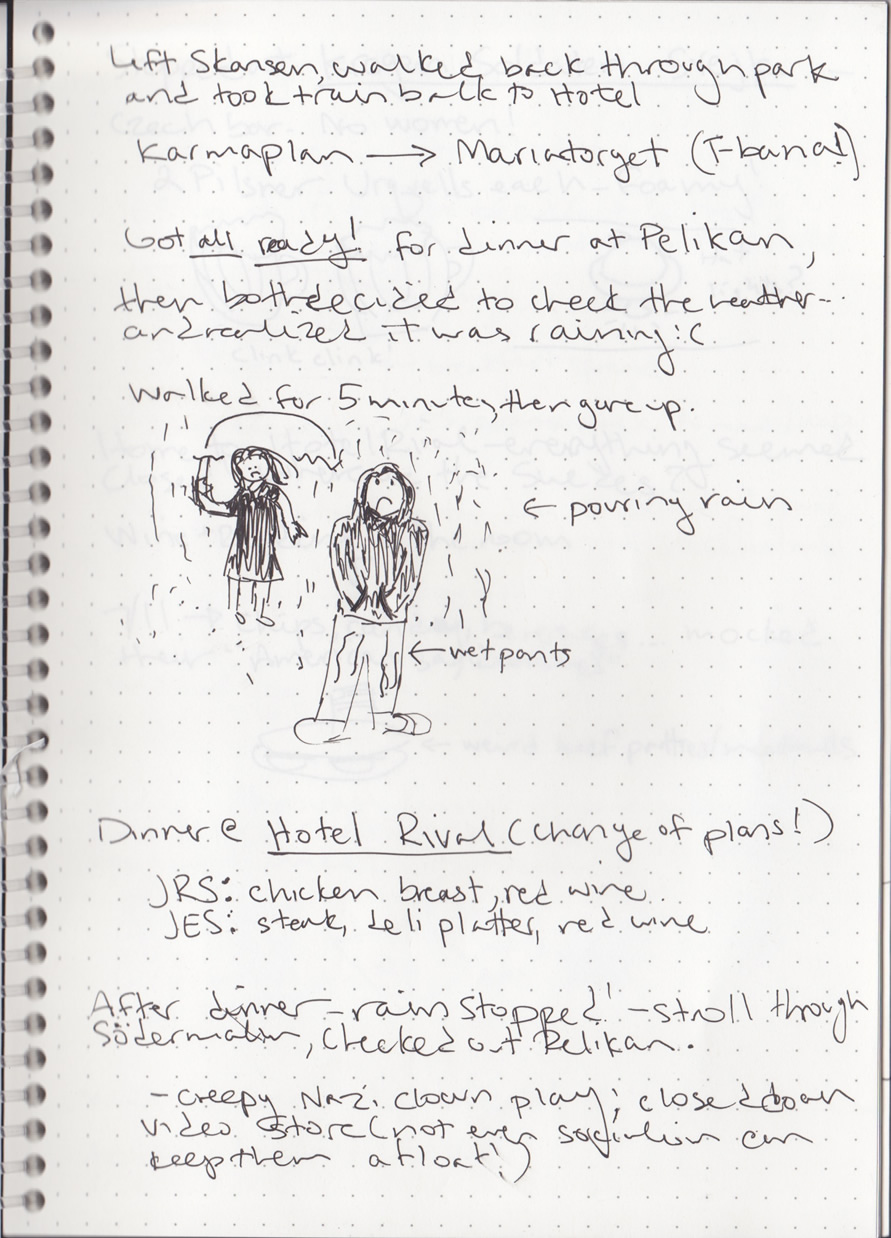 Left Skansen, walked back through park
and took train back to Hotel
Karmaplan → Mariatorget (T-bana!)
Got all ready! for dinner at Pelikan,
then both decided to check the weather--
and realized it was raining :(
Walked for 5 minutes, then gave up.
← pouring rain
← wet pants
Dinner @ Hotel Rival (change of plans!)
JRS: chicken breast, red wine
JES: steak, deli platter, red wine
After dinner - rain stopped! - stroll through
Södermalm, checked out Pelikan.
- creepy Nazi clown play; closed down
video store (not even socialism can
keep them afloat!)